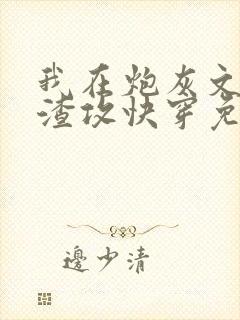 我在炮灰文
渣攻快穿免
邊少清